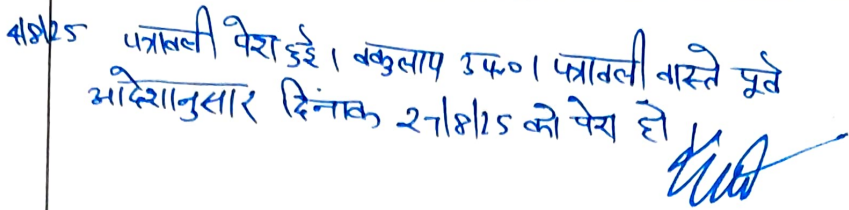 4/8/25 पत्रावली पेश हुई। वकुलाय उप०। पत्रावली वास्ते पूर्व
आदेशानुसार दिनांक 27/8/25 को पेश हो